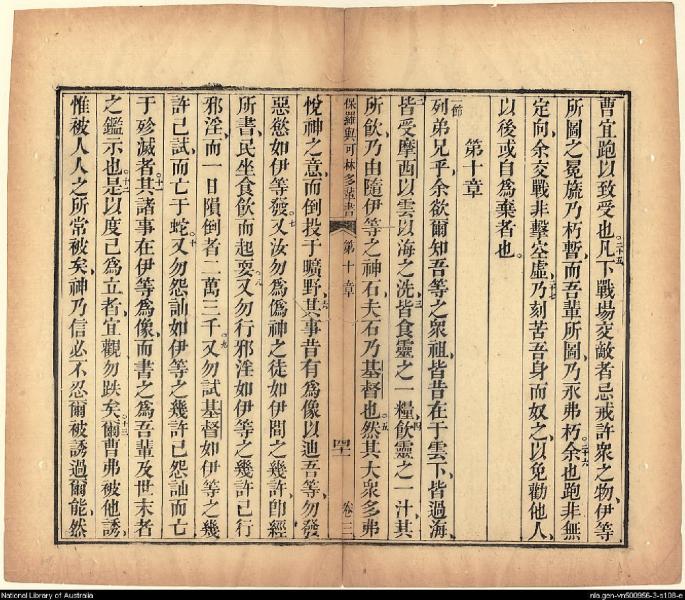 曹宜跑以致受也二十五凡下戰場交敵者忌戒許衆之物伊等
所圖之冕旒乃朽暫而吾輩所圖乃永弗朽二十六余也跑非無
定向余交戰非擊空虛二十七乃刻苦吾身而奴之以免勸他人
以後或自為棄者也
第十章
一節列弟兄乎余欲爾知吾等之衆祖皆昔在于雲下皆過海
二皆受摩西以雲以海之洗三皆食靈之一糧四飲靈之一汁其
所飲乃由隨伊等之神石夫石乃基督也五然其大衆多弗
保羅與可林多輩書 第十章 四十 卷三
悅神之意而倒投于曠野六其事昔有為像以迪吾等勿發
惡慾如伊等發七又汝勿為偽神之徒如伊間之幾許卽經
所書民坐食飲而起耍八又勿行邪淫如伊等之幾許己行
邪淫而一日隕倒者二萬三千九又勿試基督如伊等之幾
許己試而亡于蛇十又勿怨訕如伊等之幾許己怨訕而亡
于殄滅者十一其諸事在伊等為像而書之為吾輩及世末者
之鑑示也十二是以度己為立者宜觀勿跌矣十三爾曹弗被他誘
惟被人人之所常被矣神乃信必不忍爾被誘過爾能然
National Library of Australia
nla.gen-vn500956-3-s108-e